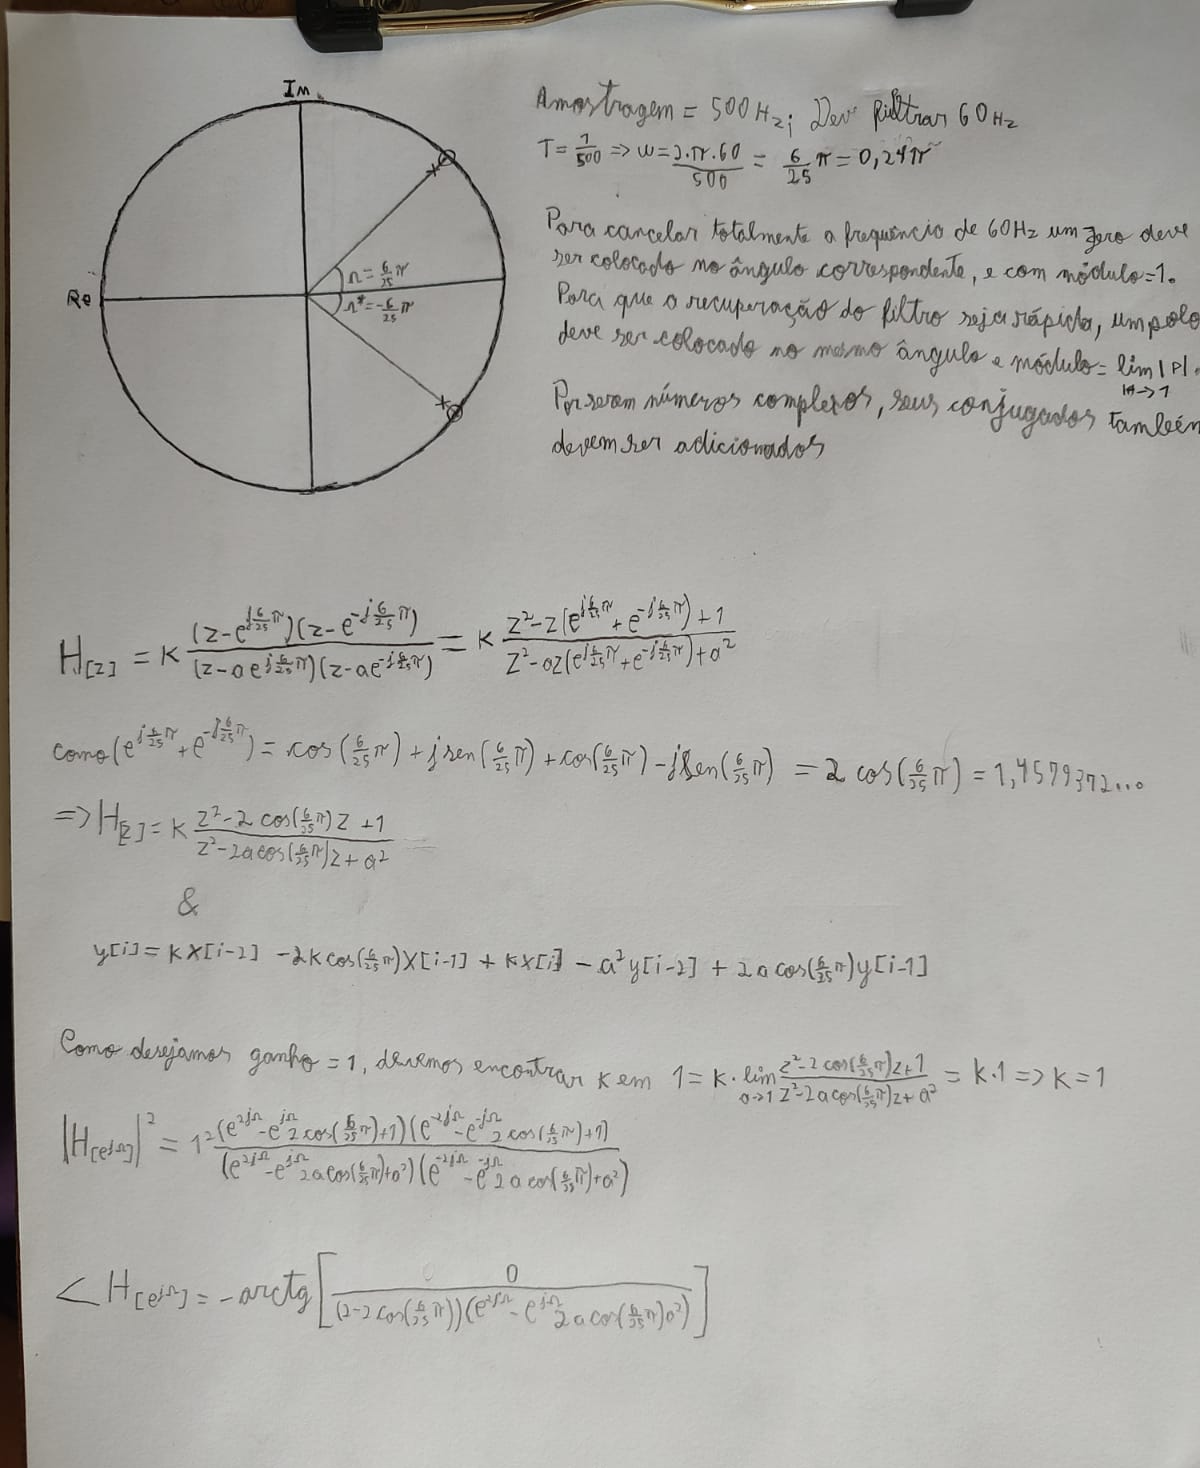 Im
Re
Ω = 6/25 π
Ω* = -6/25 π
Amostragem = 500Hz; Deve filtrar 60Hz
T = 1/500 => w = 2.π.60/500 = 6/25 π = 0,24π
Para cancelar totalmente a frequência de 60Hz um zero deve
ser colocado no ângulo correspondente, e com módulo = 1.
Para que a recuperação do filtro seja rápida, um polo
deve ser colocado no mesmo ângulo e módulo = lim |P|.
|P|->1
Por serem números complexos, seus conjugados também
devem ser adicionados
H[z] = K (z-e^{j6/25π})(z-e^{-j6/25π})/(z-ae^{j6/25π})(z-ae^{-j6/25π}) = K z²-z(e^{j6/25π}+e^{-j6/25π})+1/z²-az(e^{j6/25π}+e^{-j6/25π})+a²
como (e^{j6/25π}+e^{-j6/25π}) = cos(6/25π)+jsen(6/25π)+cos(6/25π)-jsen(6/25π) = 2 cos(6/25π) = 1,4579372...
=> H[z] = K z²-2cos(6/25π)z+1/z²-2acos(6/25π)z+a²
&
y[i] = Kx[i-2] -2Kcos(6/25π)x[i-1] + Kx[i] - a²y[i-2] + 2acos(6/25π)y[i-1]
Como desejamos ganho = 1, devemos encontrar K em 1 = K.lim_{a->1} z²-2cos(6/25π)z+1/z²-2acos(6/25π)z+a² = K.1 => K = 1
|H[e^{jΩ}]|² = 1²(e^{2jΩ}-e^{jΩ}2cos(6/25π)+1)(e^{-2jΩ}-e^{-jΩ}2cos(6/25π)+1)/(e^{2jΩ}-e^{jΩ}2acos(6/25π)+a²)(e^{-2jΩ}-e^{-jΩ}2acos(6/25π)+a²)
∠H[e^{jΩ}] = -arctg[0/(2-2cos(6/25π))(e^{2jΩ}-e^{jΩ}2acos(6/25π)a²)]